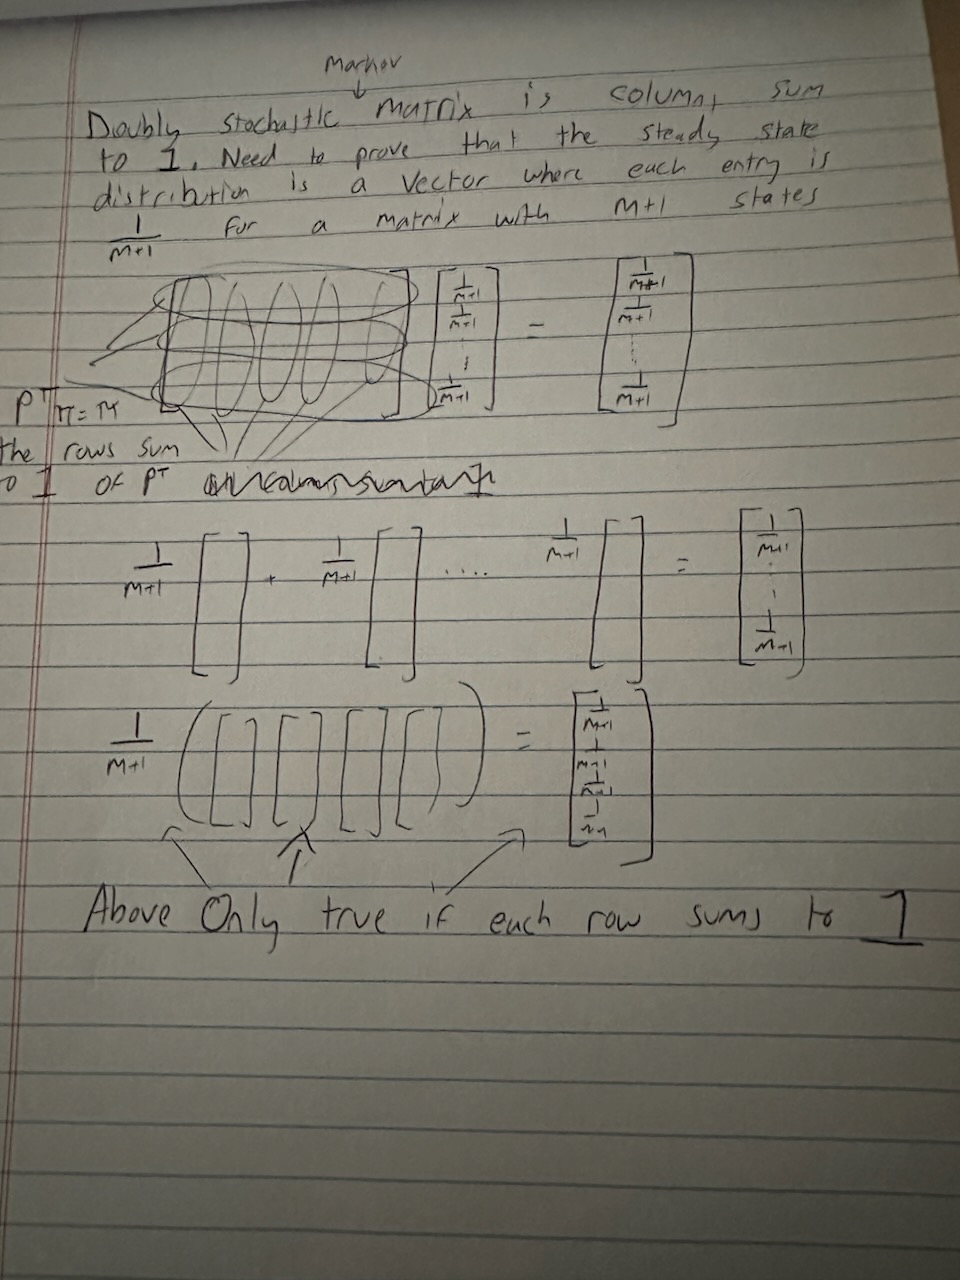 Markov
↓
Doubly stochastic matrix is columns sum
to 1. Need to prove that the steady state
distribution is a vector where each entry is
1/M+1 for a matrix with M+1 states
[ ] [1/M+1 1/M+1 ⋮ 1/M+1] = [1/M+1 1/M+1 ⋮ 1/M+1]
P^T π = π
the rows sum
to 1 of P^T
1/M+1 [ ] + 1/M+1 [ ] .... 1/M+1 [ ] = [1/M+1 ⋮ 1/M+1]
1/M+1 ([ ] [ ] [ ] [ ]) = [1/M+1 1/M+1 1/M+1]
Above Only true if each row sums to 1